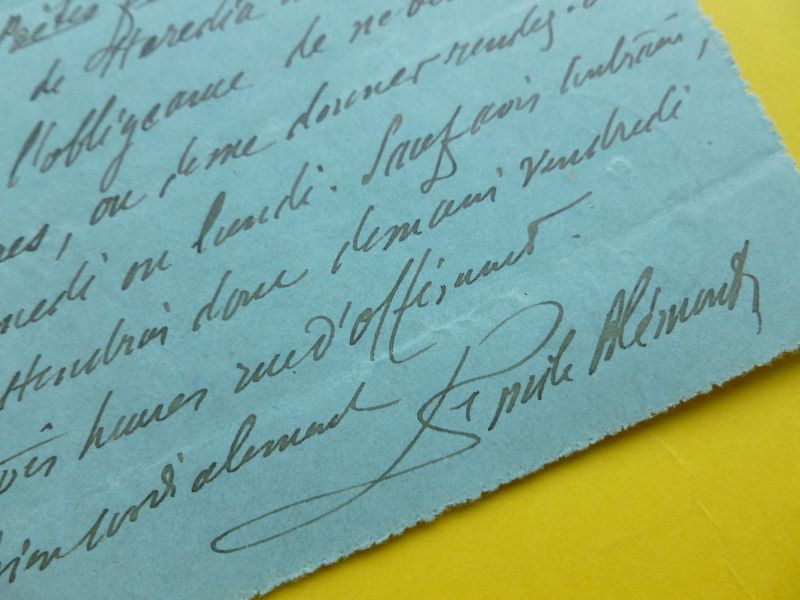 Poètes
de Heredia
l'obligeance de
res, ou de me donner rendez-
medi ou lundi. Sauf avis contraire,
ttendrai donc demain vendredi
ois heures rue d'Offémont.
bien cordialement
Emile Blémont